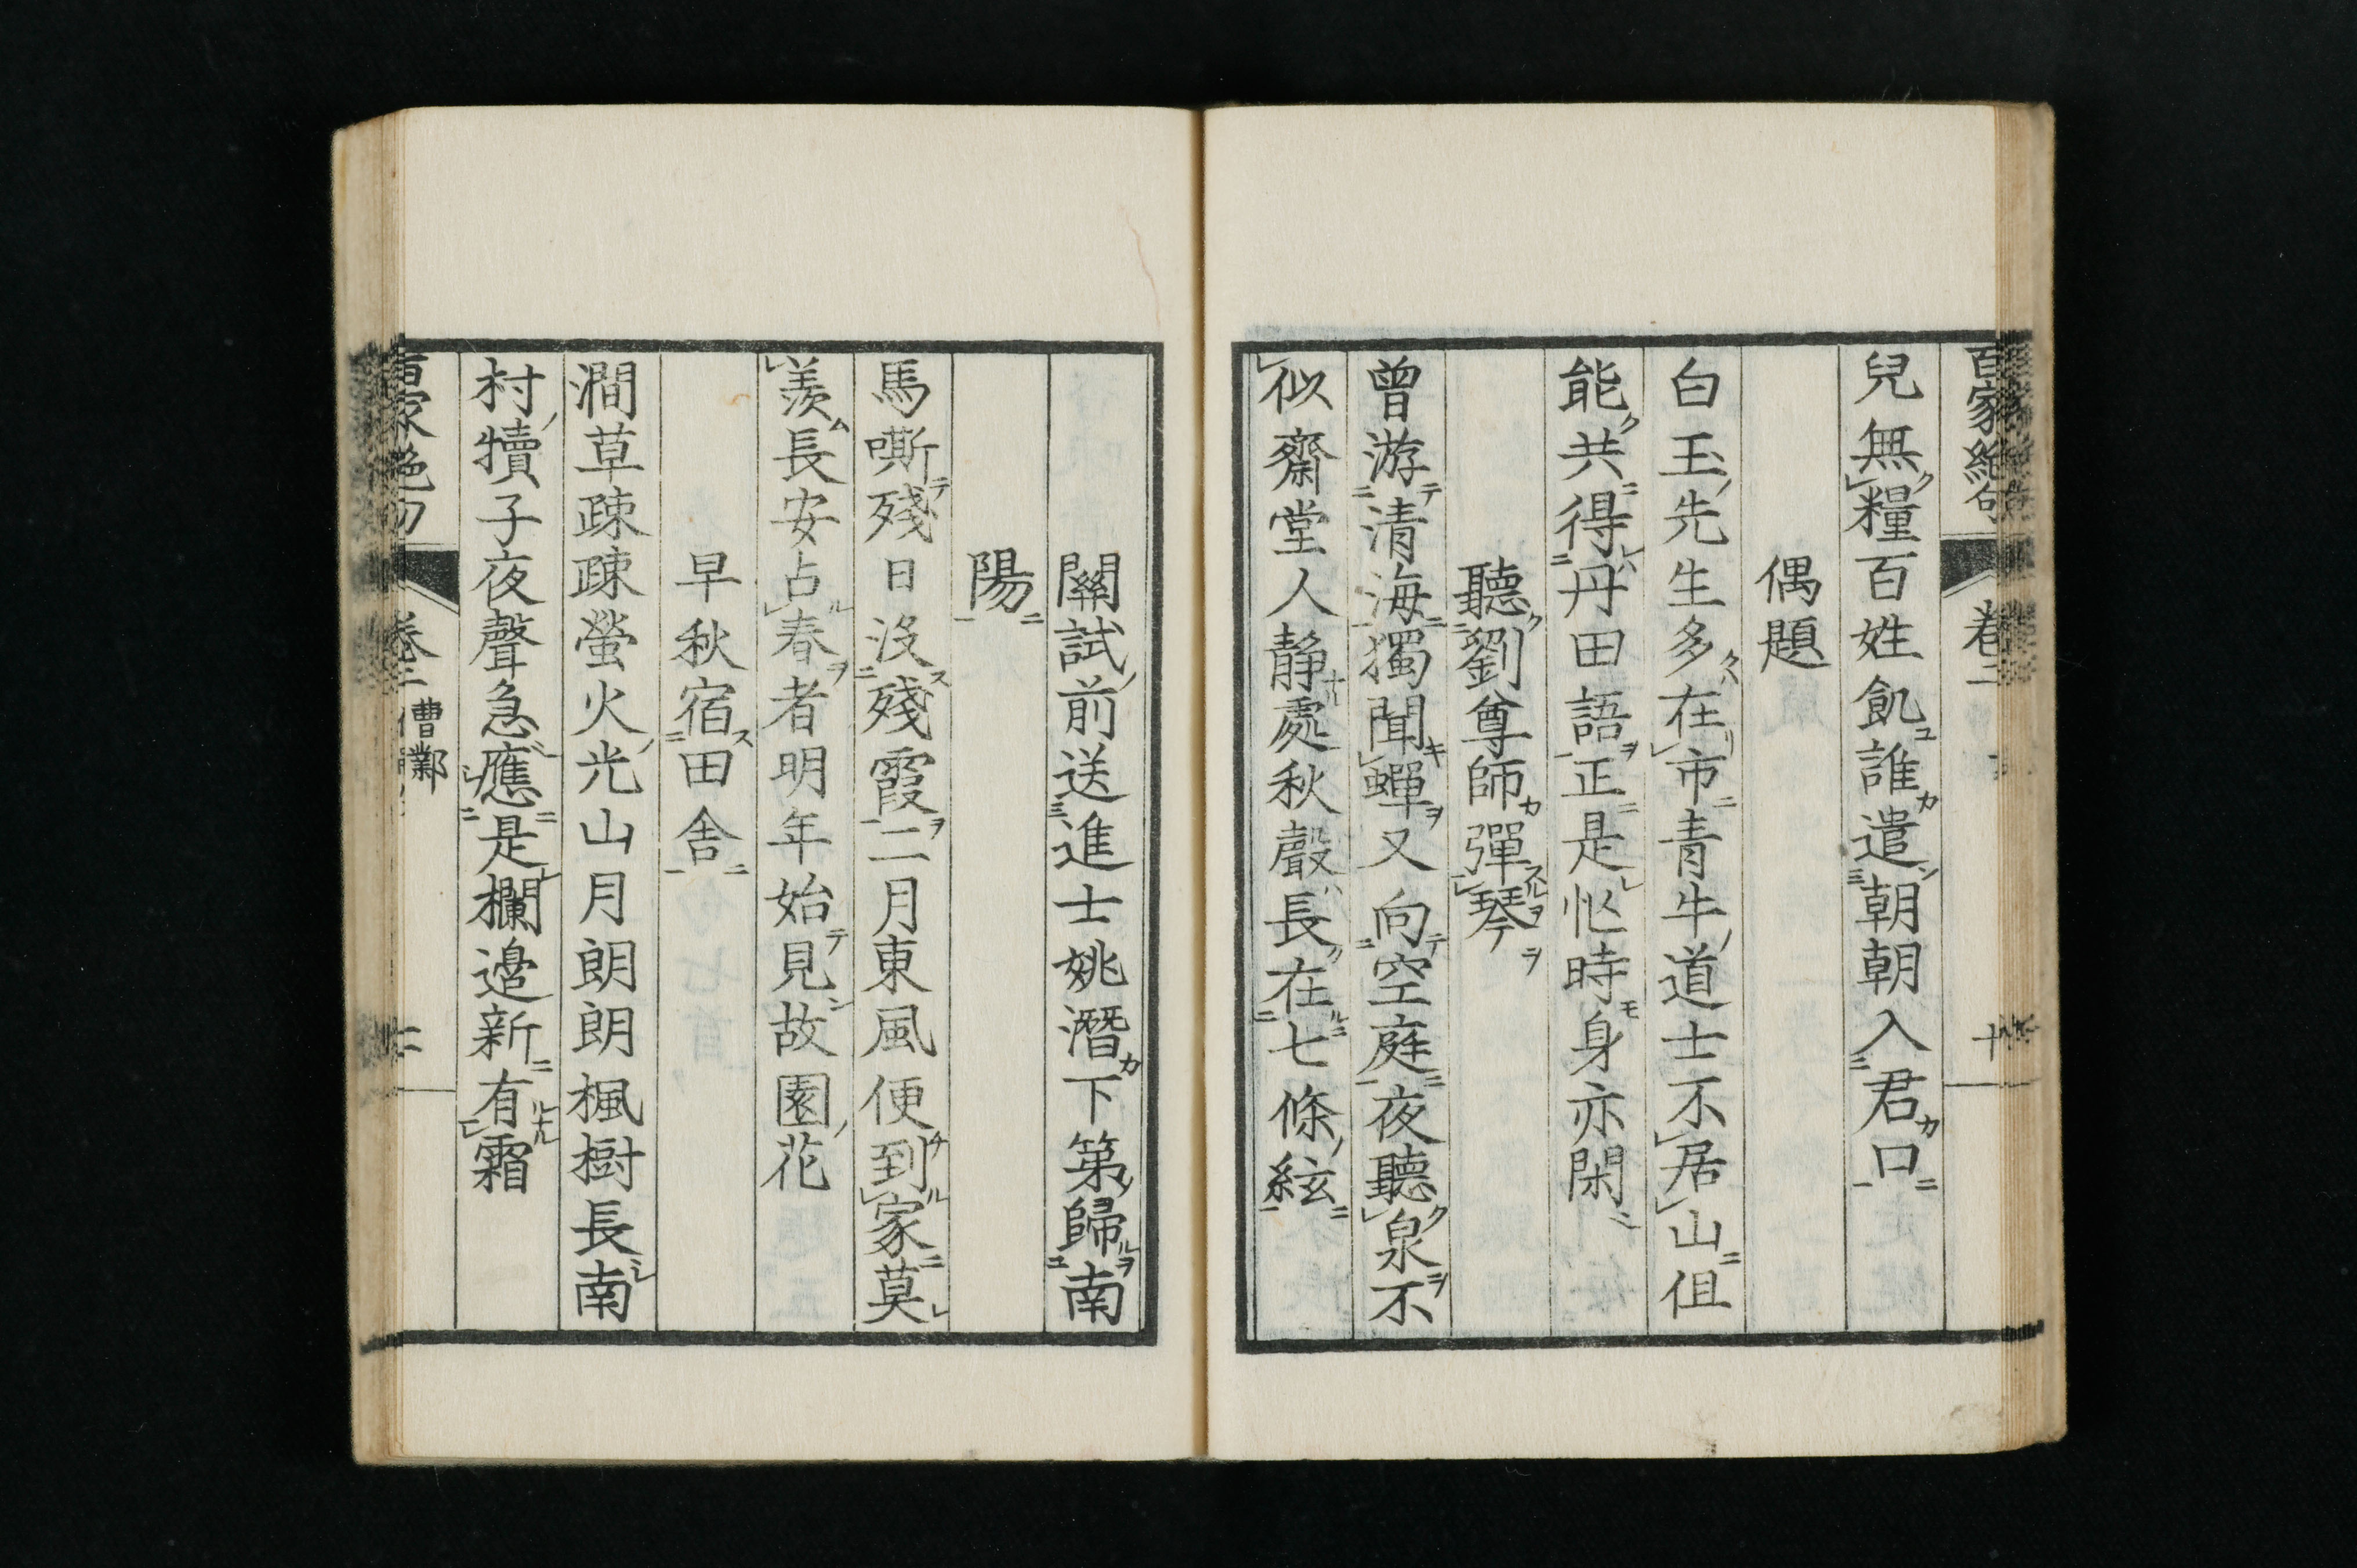 百家絶句 卷二 十
兒無糧百姓飢誰遣朝朝入君口
偶題
白玉先生多在市青牛道士不居山但
能共得丹田語正是忙時身亦閑
聽劉尊師彈琴
曾游清海獨聞蟬又向空庭夜聽泉不
似齋堂人靜處秋聲長在七條絃
關試前送進士姚潛下第歸南
陽
馬嘶殘日沒殘霞二月東風便到家莫
羨長安占春者明年始見故園花
早秋宿田舍
澗草疎疎螢火光山月朗朗楓樹長南
村犢子夜聲急應是欄邊新有霜
百家絶句 卷二 曹鄴